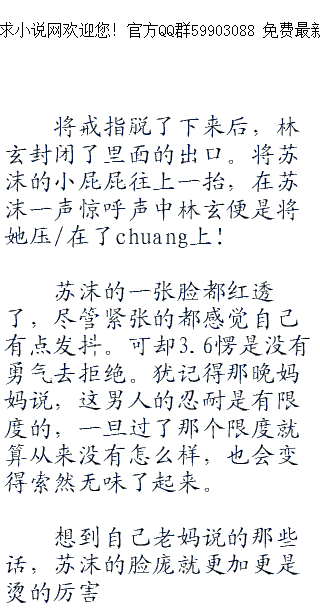 求小说网欢迎您！官方QQ群59903088 免费最新
将戒指脱了下来后，林
玄封闭了里面的出口。将苏
沫的小屁屁往上一抬，在苏
沫一声惊呼声中林玄便是将
她压/在了chuang上！
苏沫的一张脸都红透
了，尽管紧张的都感觉自己
有点发抖。可却3.6愣是没有
勇气去拒绝。犹记得那晚妈
妈说，这男人的忍耐是有限
度的，一旦过了那个限度就
算从来没有怎么样，也会变
得索然无味了起来。
想到自己老妈说的那些
话，苏沫的脸庞就更加更是
烫的厉害